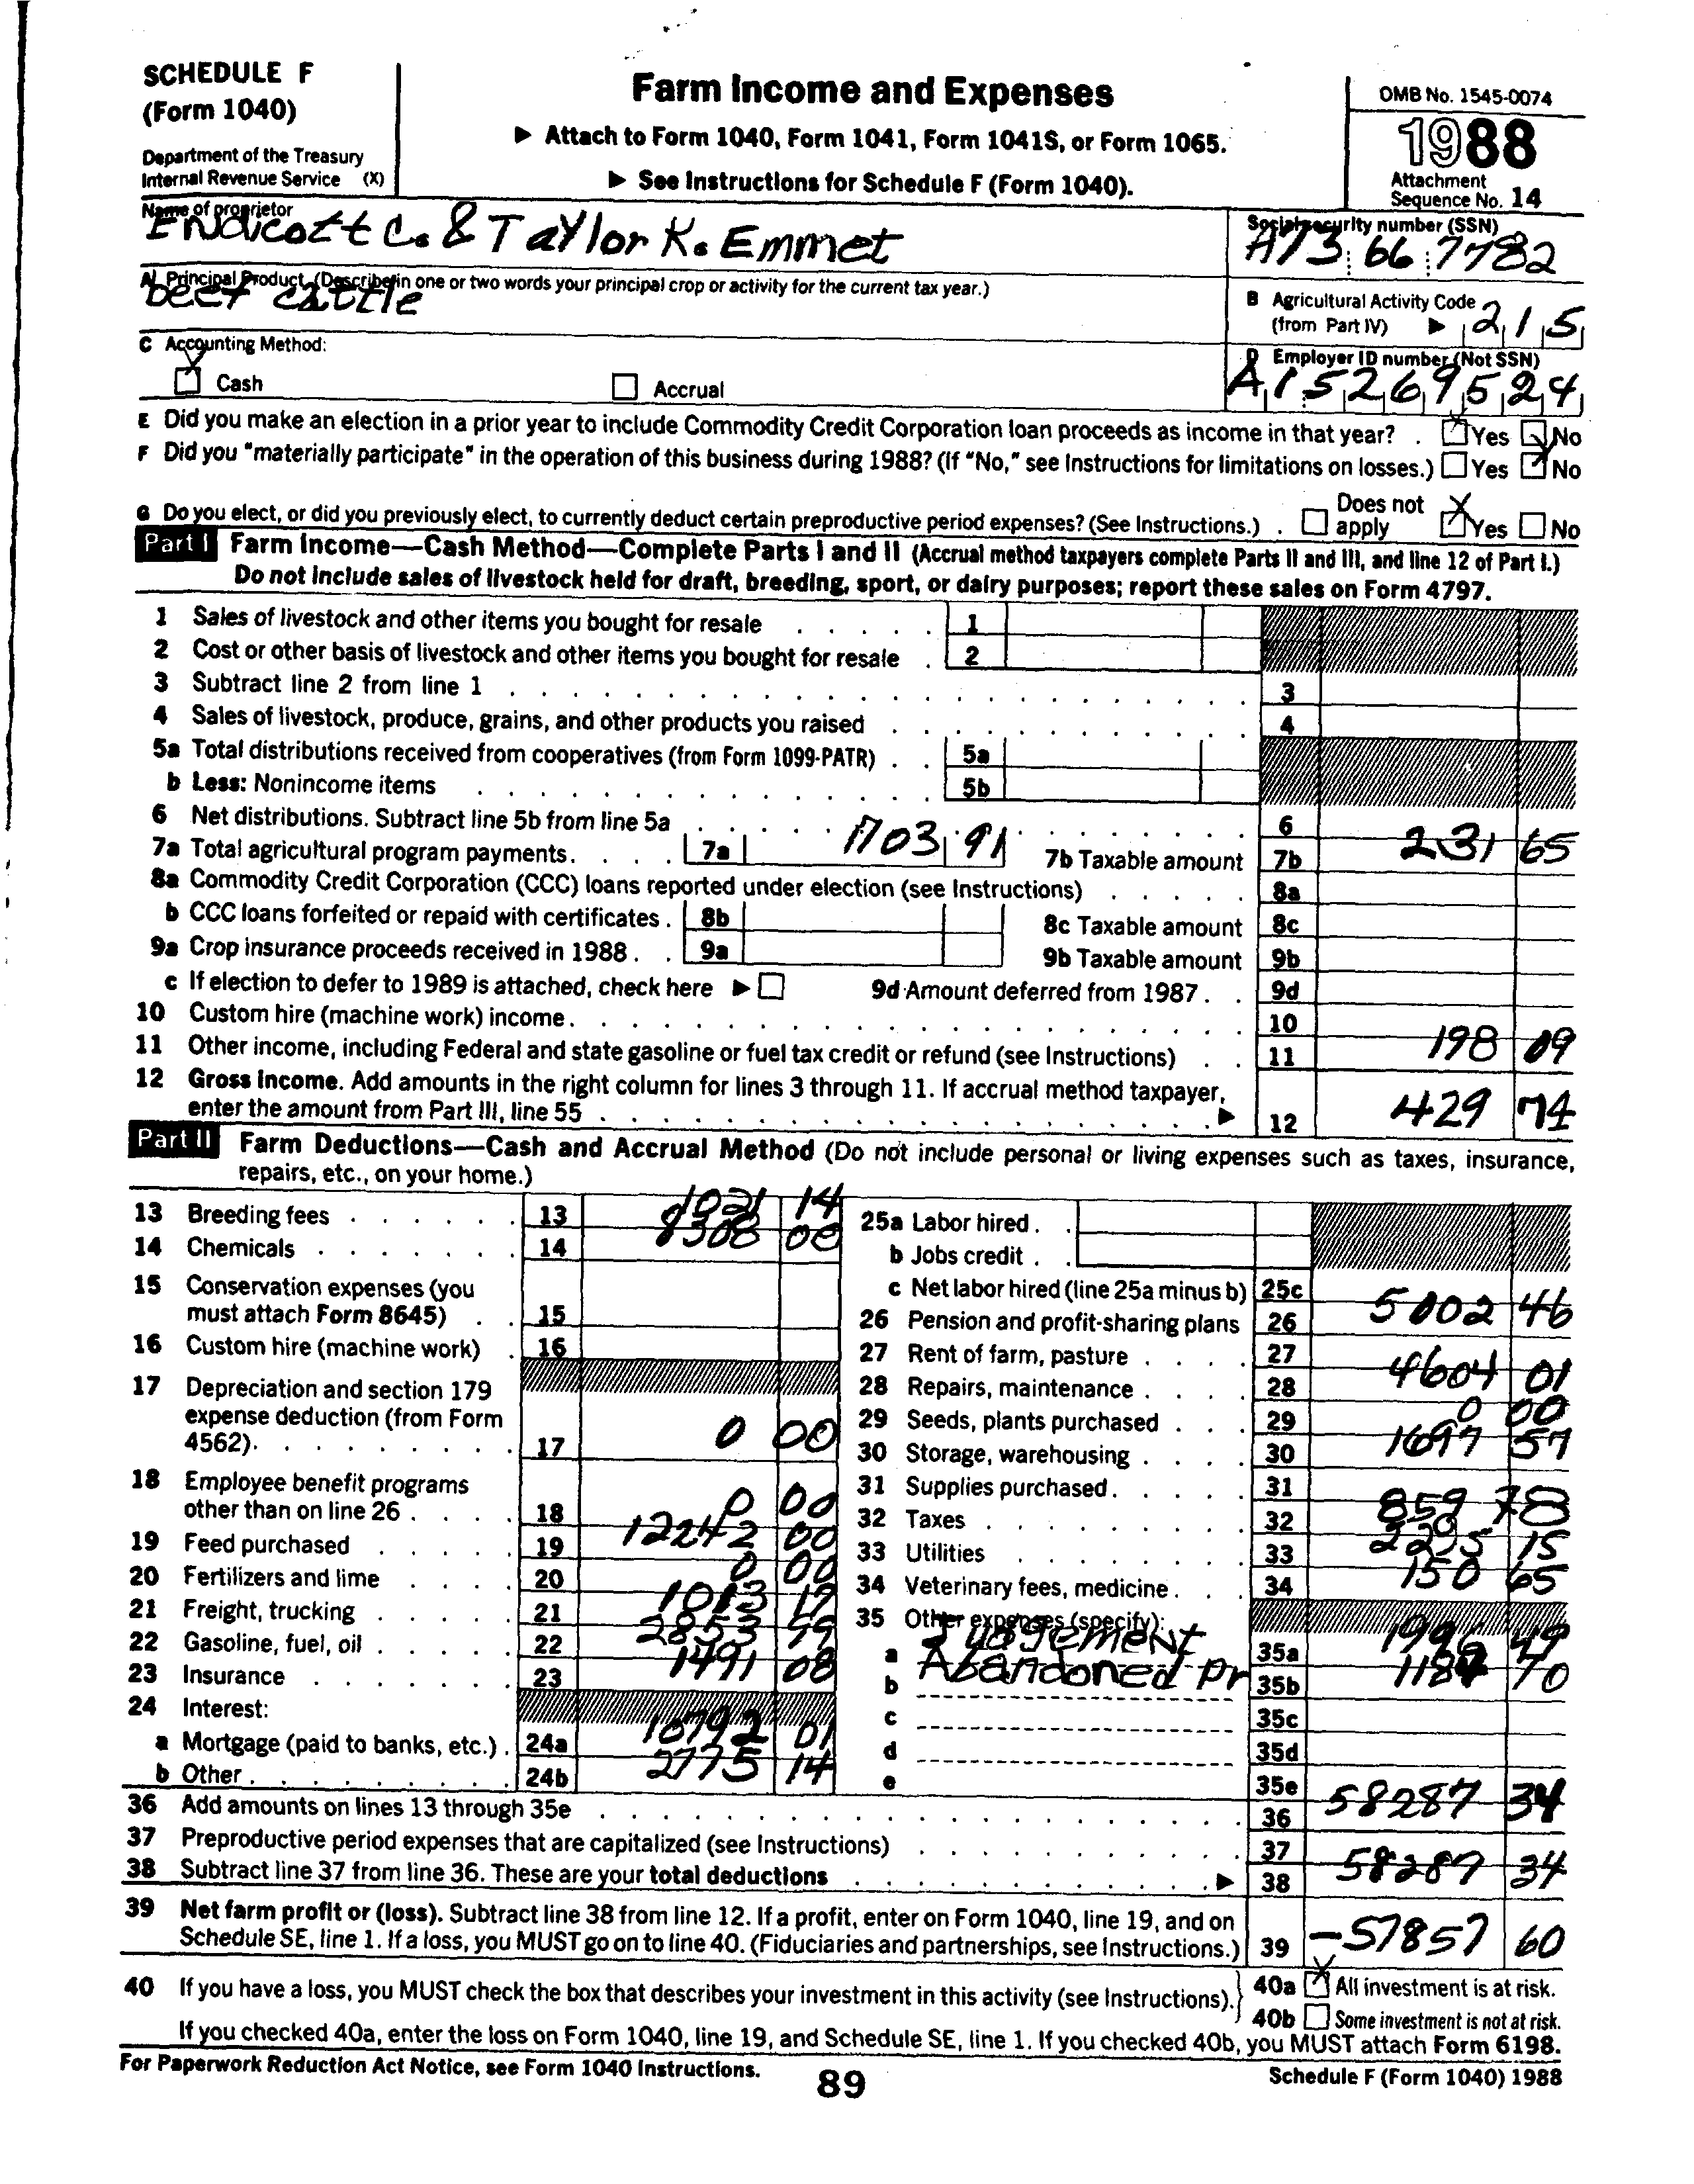 SCHEDULE F
(Form 1040)
Department of the Treasury
Internal Revenue Service (X)
Farm Income and Expenses
▶ Attach to Form 1040, Form 1041, Form 1041S, or Form 1065.
▶ See Instructions for Schedule F (Form 1040).
OMB No. 1545-0074
1988
Attachment
Sequence No. 14
Name of proprietor
Endicott C. & Taylor K. Emmet
Social security number (SSN)
A73 66 7782
A Principal Product (Describe in one or two words your principal crop or activity for the current tax year.)
beef cattle
B Agricultural Activity Code
(from Part IV) ▶ 215
C Accounting Method:
X Cash Accrual
D Employer ID number (Not SSN)
A15269524
E Did you make an election in a prior year to include Commodity Credit Corporation loan proceeds as income in that year? . Yes No
F Did you "materially participate" in the operation of this business during 1988? (If "No," see Instructions for limitations on losses.) Yes No
G Do you elect, or did you previously elect, to currently deduct certain preproductive period expenses? (See Instructions.) . Does not apply X Yes No
Part I Farm Income—Cash Method—Complete Parts I and II (Accrual method taxpayers complete Parts II and III, and line 12 of Part I.)
Do not include sales of livestock held for draft, breeding, sport, or dairy purposes; report these sales on Form 4797.
1 Sales of livestock and other items you bought for resale 1
2 Cost or other basis of livestock and other items you bought for resale 2
3 Subtract line 2 from line 1 3
4 Sales of livestock, produce, grains, and other products you raised 4
5a Total distributions received from cooperatives (from Form 1099-PATR) 5a
b Less: Nonincome items 5b
6 Net distributions. Subtract line 5b from line 5a 6
7a Total agricultural program payments. 7a 1703 91 7b Taxable amount 7b 231 65
8a Commodity Credit Corporation (CCC) loans reported under election (see Instructions) 8a
b CCC loans forfeited or repaid with certificates . 8b 8c Taxable amount 8c
9a Crop insurance proceeds received in 1988 . 9a 9b Taxable amount 9b
c If election to defer to 1989 is attached, check here ▶ 9d Amount deferred from 1987 . 9d
10 Custom hire (machine work) income. 10
11 Other income, including Federal and state gasoline or fuel tax credit or refund (see Instructions) 11 198 09
12 Gross Income. Add amounts in the right column for lines 3 through 11. If accrual method taxpayer,
enter the amount from Part III, line 55 ▶ 12 429 74
Part II Farm Deductions—Cash and Accrual Method (Do not include personal or living expenses such as taxes, insurance,
repairs, etc., on your home.)
13 Breeding fees 13 1021 14
14 Chemicals 14 8308 00
15 Conservation expenses (you
must attach Form 8645) 15
16 Custom hire (machine work) 16
17 Depreciation and section 179
expense deduction (from Form
4562). 17 0 00
18 Employee benefit programs
other than on line 26 18 0 00
19 Feed purchased 19 12242 00
20 Fertilizers and lime 20 0 00
21 Freight, trucking 21 1013 17
22 Gasoline, fuel, oil 22 2853 99
23 Insurance 23 1491 08
24 Interest:
a Mortgage (paid to banks, etc.) . 24a 10792 01
b Other 24b 2775 14
25a Labor hired .
b Jobs credit .
c Net labor hired (line 25a minus b) 25c
26 Pension and profit-sharing plans 26 5002 46
27 Rent of farm, pasture 27
28 Repairs, maintenance 28 4604 01
29 Seeds, plants purchased 29 0 00
30 Storage, warehousing 30 1697 57
31 Supplies purchased. 31
32 Taxes 32 859 78
33 Utilities 33 2295 15
34 Veterinary fees, medicine. 34 150 65
35 Other expenses (specify):
a Judgement 35a 1996 49
b Abandoned Pr 35b 1184 70
c 35c
d 35d
e 35e
36 Add amounts on lines 13 through 35e 36 58287 34
37 Preproductive period expenses that are capitalized (see Instructions) 37
38 Subtract line 37 from line 36. These are your total deductions ▶ 38 58287 34
39 Net farm profit or (loss). Subtract line 38 from line 12. If a profit, enter on Form 1040, line 19, and on
Schedule SE, line 1. If a loss, you MUST go on to line 40. (Fiduciaries and partnerships, see Instructions.) 39 -57857 60
40 If you have a loss, you MUST check the box that describes your investment in this activity (see Instructions). 40a X All investment is at risk.
40b Some investment is not at risk.
If you checked 40a, enter the loss on Form 1040, line 19, and Schedule SE, line 1. If you checked 40b, you MUST attach Form 6198.
For Paperwork Reduction Act Notice, see Form 1040 Instructions.
89
Schedule F (Form 1040) 1988